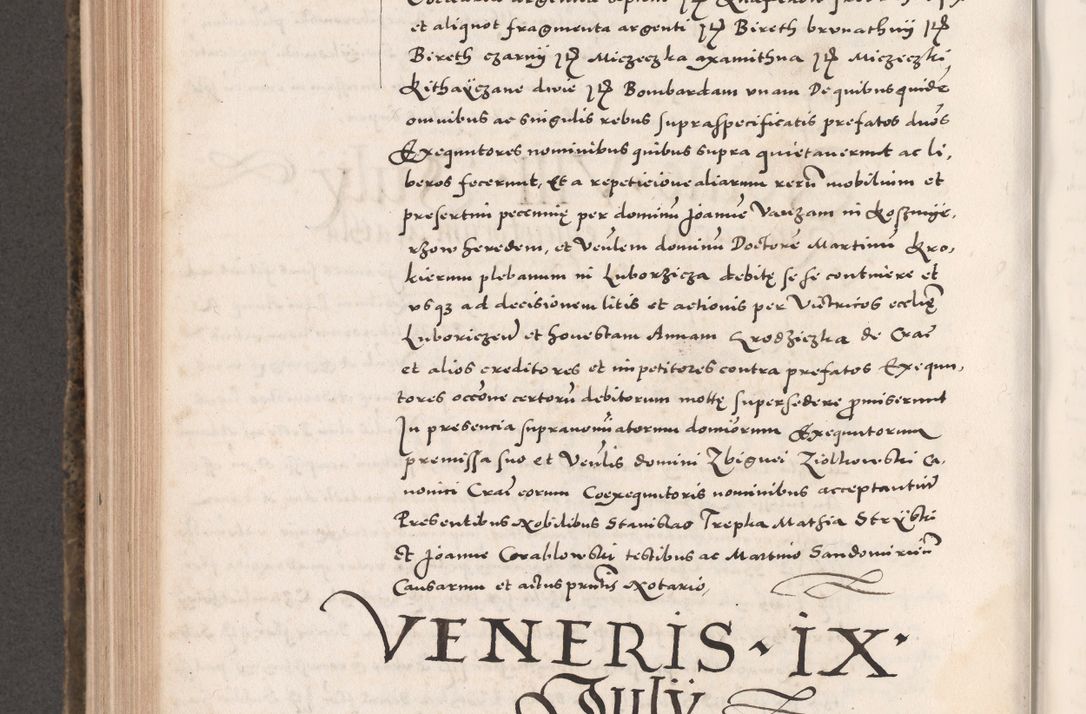 et aliquot fragmenta argenti Itē Bireth brunathnij Itē
Bireth czarnij Itē Miczeczka axamithna Itē Miczeczki
Kithayczane dwie Itē Bombardam vnam De quibus quidē
omnibus ac singulis rebus supraspecificatis prefatos duos
Exequutores nominibus quibus supra quietauerunt ac li,
beros fecerunt, Et a repeticione aliarum rerū mobilium et
presertim pecunię per dominū Joannē Vanzam in Koszmijr,
rzow heredem, et Venlem dominū Doctorē Martinū Kro,
kierum plebanum in Luborzicza debitę se se continere et
vsqз ad decisionem litis et actionis per Victricos ecclię
Luboriczeñ et honestam Annam Krodziczka de Craē
et alios creditores et impetitores contra prefatos Exequu,
tores occōne certorū debitorum mottę supersedere ꝓmiserunt
In presencia supranomīatorum dominorum Exequutorum
premissa suo et Venlis domini Zbignei Ziolkowski Ca,
nonici Craē eorum Coexequutoris nominibus acceptantiū
Presentibus Nobilibus Stanislao Trepka Mathia Strÿski
Et Joanne Corablowski testibus ac Martino Sandomiriēn
Causarum et actus prñtis Notario,
VENERIS · IX ·
Julÿ